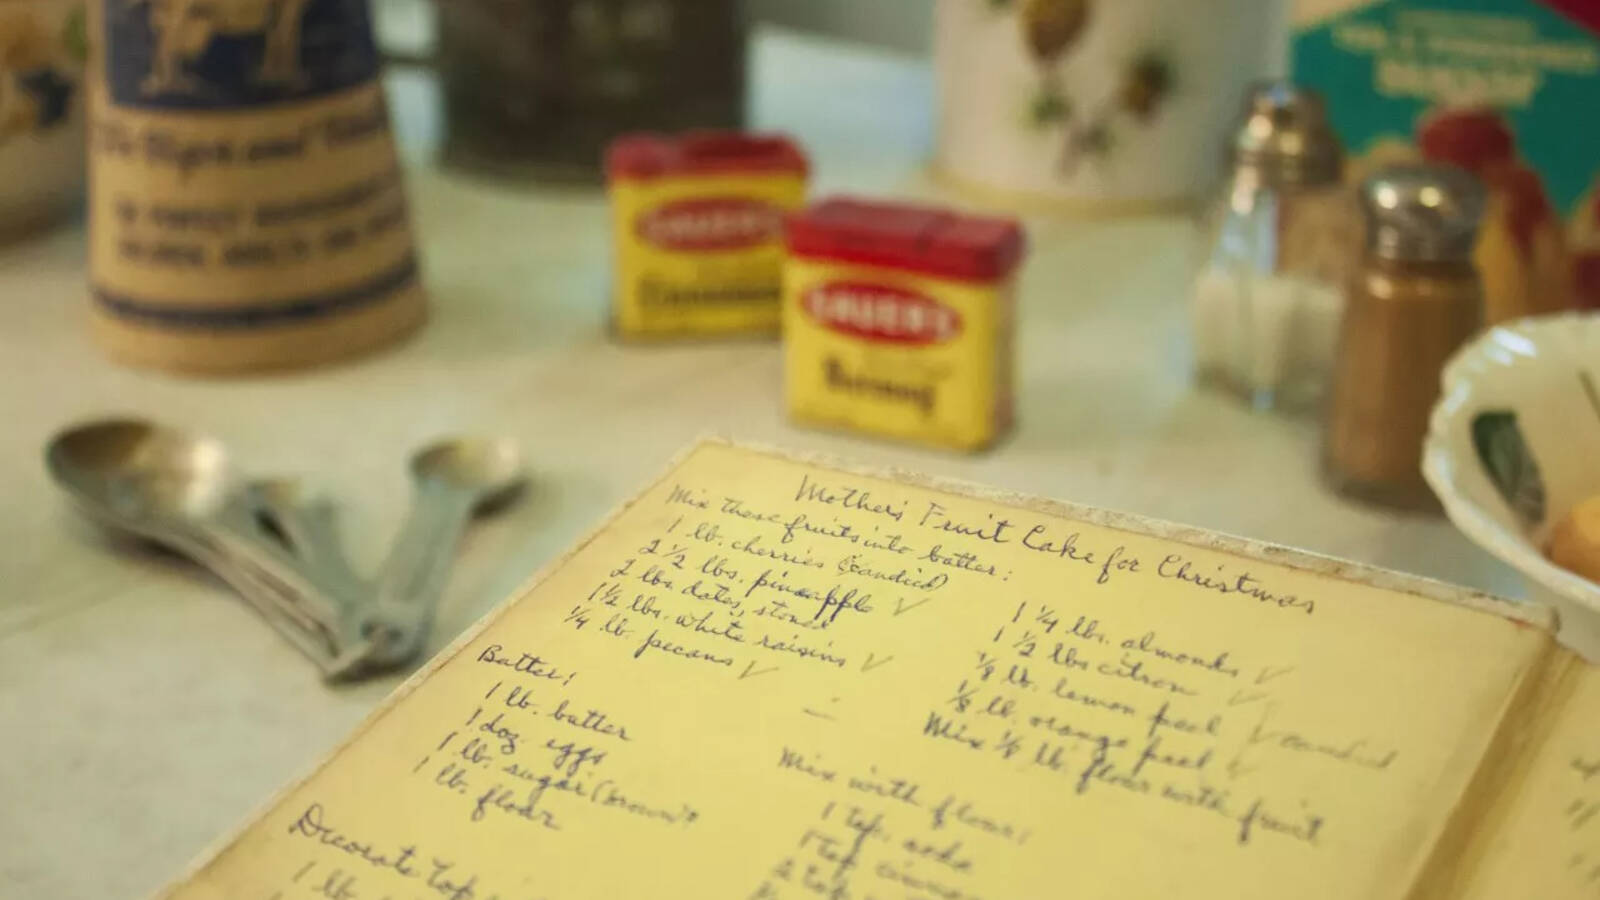 SAUER'S
SAUER'S
Nutmeg
Mother's Fruit Cake for Christmas
Mix these fruits into batter:
1 lb. cherries (candied)
2 1/2 lbs. pineapple ✓
2 lbs. dates, stoned
1 1/2 lbs. white raisins ✓
1/4 lb. pecans ✓
1 1/4 lbs. almonds ✓
1 1/2 lbs citron ✓
1/8 lb. lemon peel ✓ candied
1/8 lb. orange peel ✓
Mix 1/8 lb. flour with fruit
Batter:
1 lb. butter
1 doz eggs
1 lb. sugar (brown)
1 lb. flour
Mix with flour:
1 tsp. soda
1 tsp
Decorate top
1 lb.